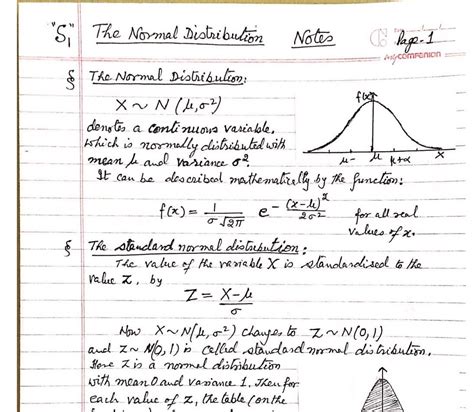 "S₁" The Normal Distribution Notes Page-1
mycompanion
§ The Normal Distribution:
X ~ N(μ, σ²)
f(x)
denotes a continuous variable,
which is normally distributed with
μ- μ X
mean μ and variance σ².
It can be described mathematically by the function:
f(x) = 1/(σ√2π) e^-(x-μ)²/2σ² for all real
values of x.
§ The standard normal distribution:
The value of the variable X is standardised to the
value Z, by
Z = X-μ/σ
Now X~N(μ,σ²) changes to Z~N(0,1)
and Z~N(0,1) is called standard normal distribution.
Here Z is a normal distribution
with mean 0 and variance 1. Then for
each value of Z, the table (on the